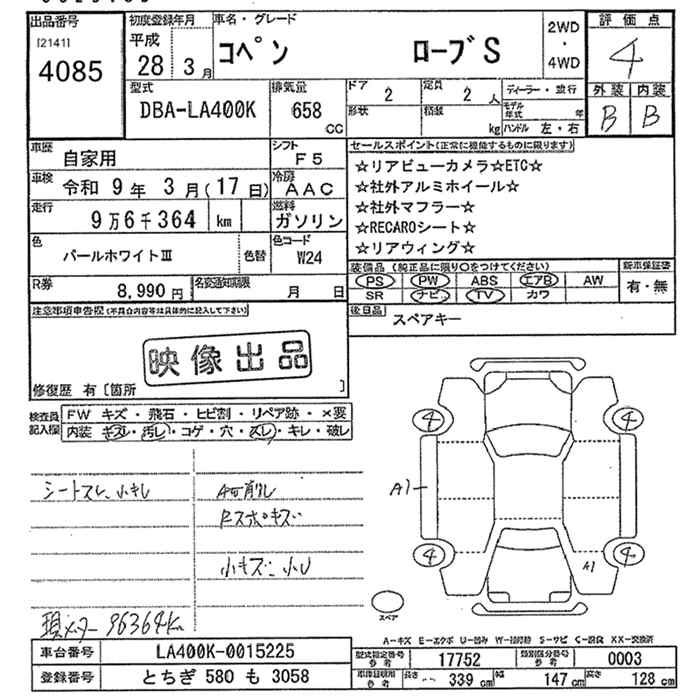 出品番号
[2141]
4085
初度登録年月
平成
28 3月
車名・グレード
コペン ローブS
2WD
・
4WD
評価点
4
外装 内装
B B
型式
DBA-LA400K
排気量
658
CC
ドア
2
定員
2 人
形状
積載
kg
ディーラー・並行
モデル年式 年
ハンドル 左・右
車歴
自家用
シフト
F5
車検
令和 9年 3月(17日)
冷房
AAC
走行
9万6千364 km
燃料
ガソリン
色
パールホワイトⅢ
色替
色コード
W24
R券
8,990円
名変通知期限
月 日
セールスポイント(正常に機能するものに限ります)
☆リアビューカメラ☆ETC☆
☆社外アルミホイール☆
☆社外マフラー☆
☆RECAROシート☆
☆リアウィング☆
装備品(純正品に限り〇をつけてください)
PS PW ABS エアB AW
SR ナビ TV カワ
新車保証書
有・無
後日品
スペアキー
注意事項申告欄(不具合内容等は具体的に記入して下さい)
映像出品
修復歴 有〔箇所 〕
検査員
記入欄
FW キズ・飛石・ヒビ割・リペア跡・×要
内装 キズレ・汚レ・コゲ・穴・スレ・キレ・破レ
シートスレ、小キレ
Rスポキズ
小キズ、小U
現メーター 96364K
4 4
A1
4 4
A1
スペア
A-キズ E-エクボ U-凹み W-補修跡 S-サビ C-腐食 XX-交換済
車台番号
LA400K-0015225
登録番号
とちぎ 580 も 3058
型式指定番号
参考
17752
類別区分番号
参考
0003
車検証記載
参考
長さ 339 cm
幅 147 cm
高さ 128 cm